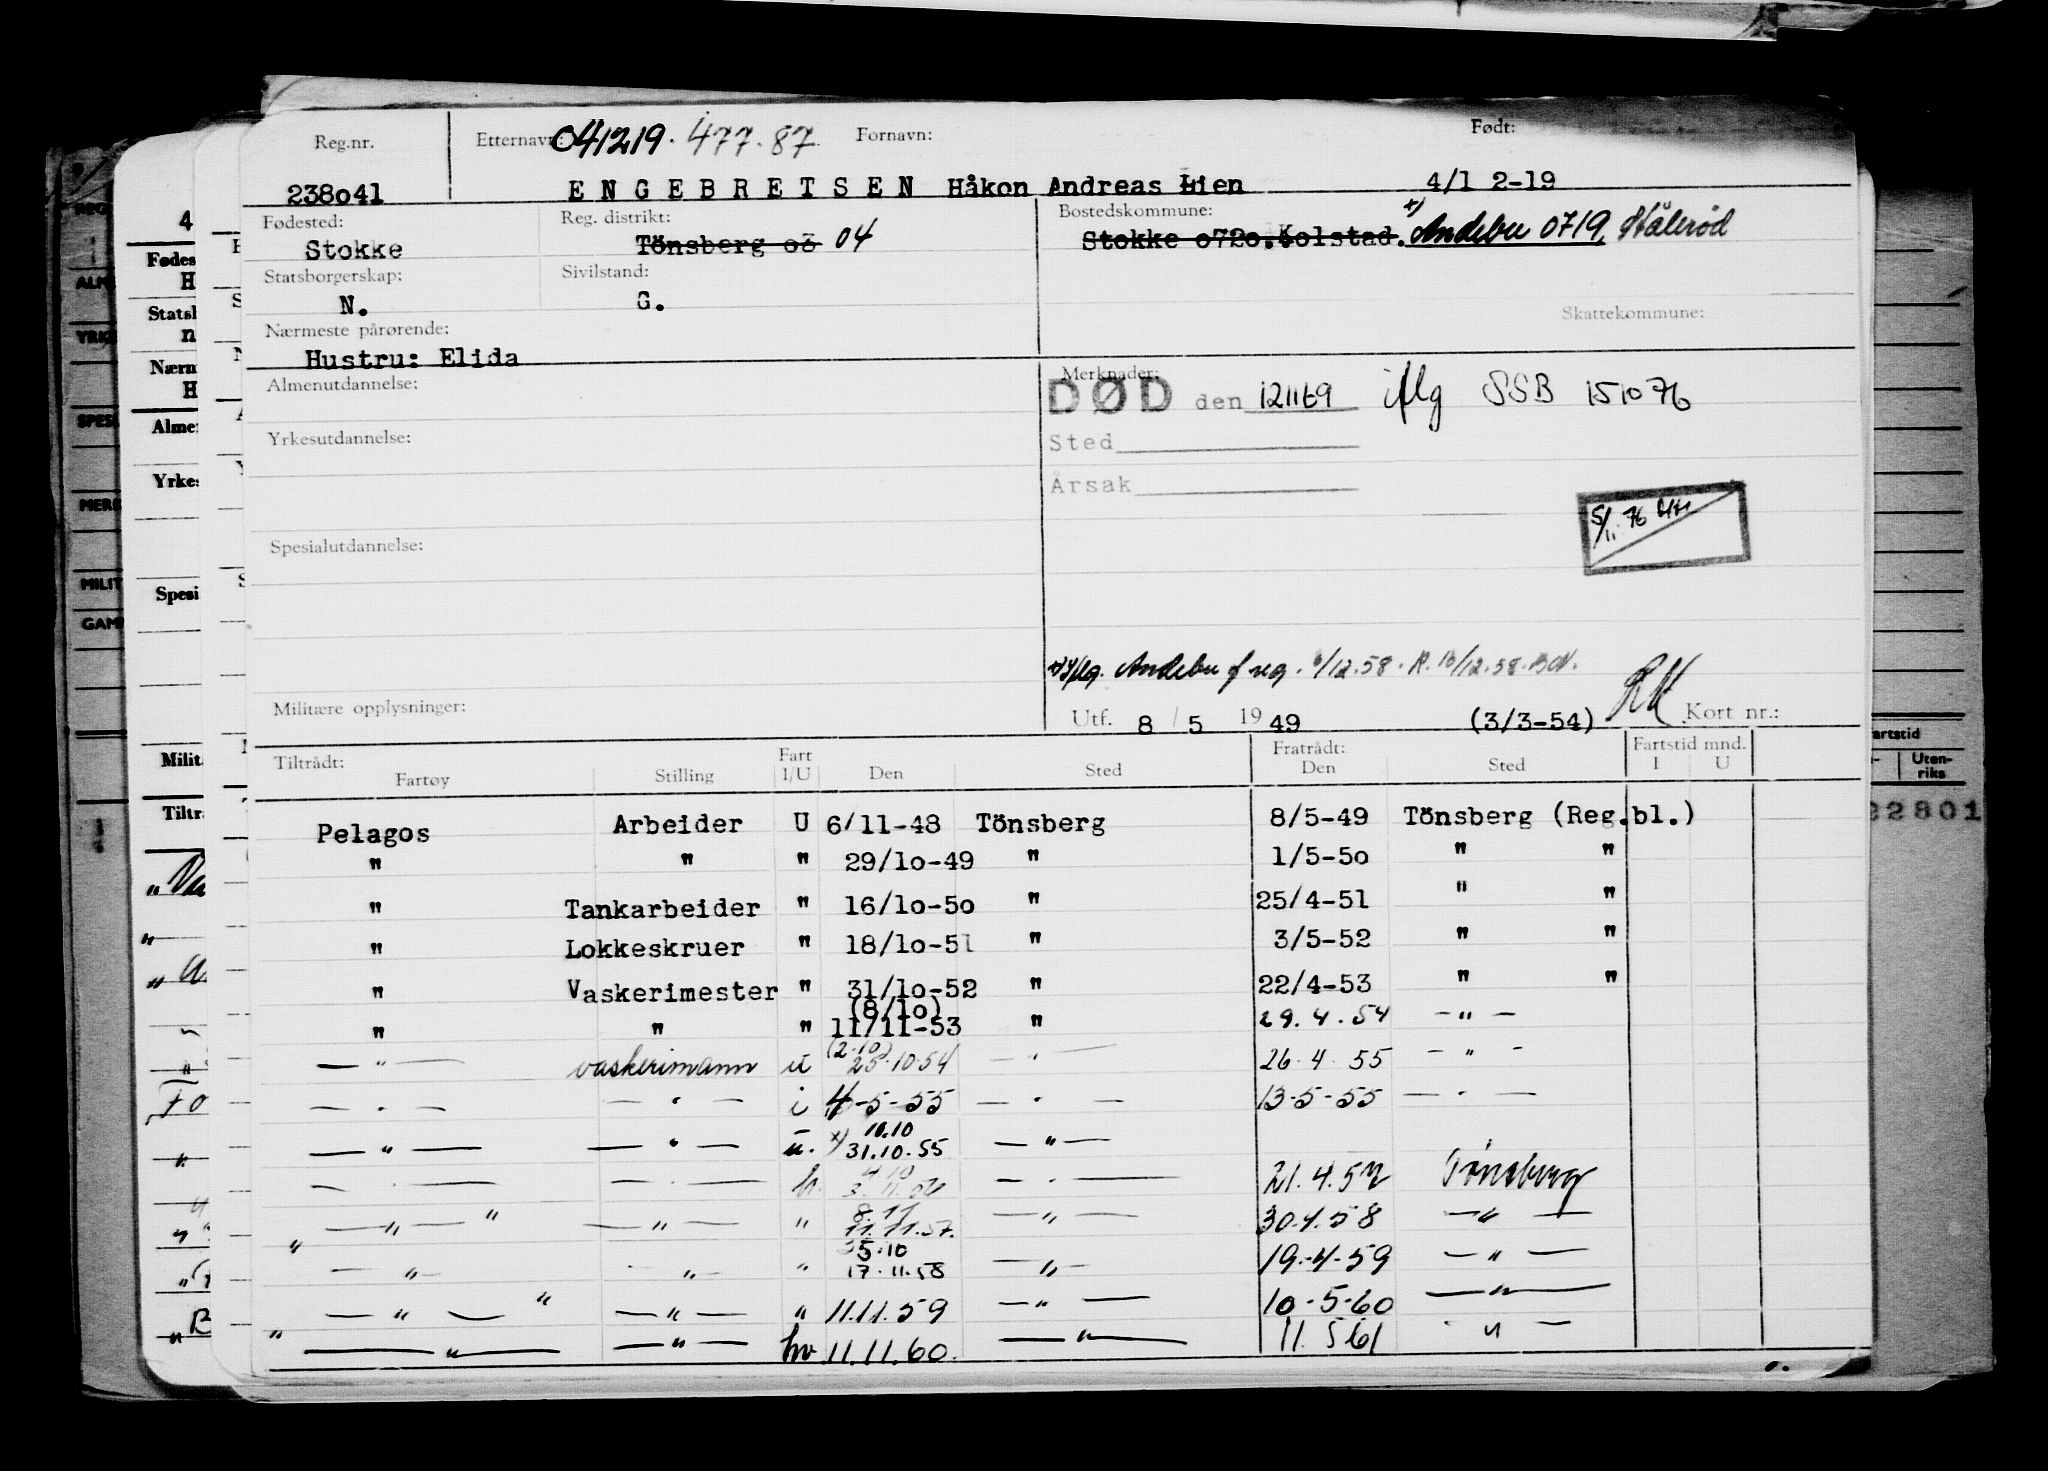 Reg.nr. Etternavn: 041219.477.87 Fornavn: Født:
238o41 ENGEBRETSEN Håkon Andreas Lien 4/1 2-19
Fødested: Reg. distrikt: Bostedskommune:
Stokke Tönsberg o3 04 Stokke o72o. Kolstad. x) Andebu 0719,
Statsborgerskap: Sivilstand:
N. G.
Skattekommune:
Nærmeste pårørende:
Hustru: Elida
Almenutdannelse: Merknader:
DØD den 121169 iflg SSB 151076
Yrkesutdannelse: Sted
Årsak
5/11.76
Spesialutdannelse:
x) Iflg. Andebu f reg. 6/12.58. R. 10/12.58.
Militære opplysninger: Utf. 8 / 5 19 49 (3/3-54) RK Kort nr.:
Tiltrådt: Fart Fratrådt: Fartstid mnd.
Fartøy Stilling I/U Den Sted Den Sted I U
Pelagos Arbeider U 6/11-48 Tönsberg 8/5-49 Tönsberg (Reg.bl.)
" " " 29/1o-49 " 1/5-5o " "
" Tankarbeider " 16/1o-5o " 25/4-51 " "
" Lokkeskruer " 18/1o-51 " 3/5-52 " "
" Vaskerimester " 31/1o-52 " 22/4-53 " "
(8/1o)
" " " 11/11-53 " 29.4.54 - " -
(2.10)
- " - vaskerimann u 25.10.54 - " - 26.4.55 - " -
- " - - " - i 4-5-55 - " - 13-5-55 - " -
10.10
- " - - " - u. x) 31.10.55 - " -
4.10
- " - - " - hv. 3.11.56 - " - 21.4.57 Tønsberg
8.11
" - " - " - " - " 11.11.57. - " - 30.4.58 - " -
5.10
- " - - " - " 17.11.58 - " - 19.-4-59 - " -
- " - " - " - " 11.11.59 - " - 10-5-60 - " -
" - " - - " - hv 11.11.60. - " - 11.5.61 - " -
4
Fødes
H
Statsl
n
Nærm
H
Alme
Yrkes
Spesi
Milit
Tiltr
ALM
YRK
SPESI
MERK
MILIT
GAM
artstid
Uten-
riks
22801